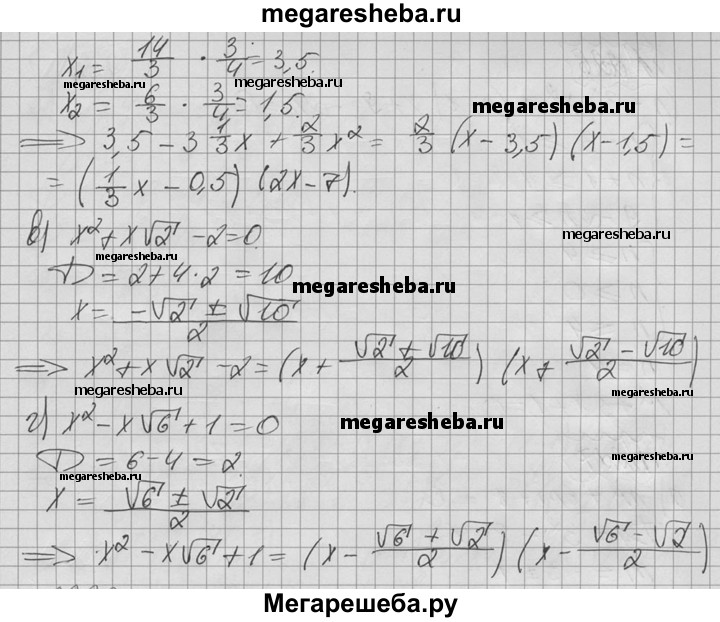 megaresheba.ru
x₁ = 14/3 · 3/4 = 3,5.
megaresheba.ru megaresheba.ru
x₂ = 6/3 · 3/4 = 1,5.
megaresheba.ru
⟹ 3,5 − 3 1/3 x + 2/3 x² = 2/3 (x − 3,5) (x − 1,5) =
= (1/3 x − 0,5) (2x − 7).
в) x² + x√2 − 2 = 0
megaresheba.ru
D = 2 + 4 · 2 = 10
megaresheba.ru
x = (−√2 ± √10)/2
⟹ x² + x√2 − 2 = (x + (√2 + √10)/2) (x + (√2 − √10)/2)
megaresheba.ru megaresheba.ru
г) x² − x√6 + 1 = 0
megaresheba.ru
D = 6 − 4 = 2.
megaresheba.ru megaresheba.ru
x = (√6 ± √2)/2
⟹ x² − x√6 + 1 = (x − (√6 + √2)/2) (x − (√6 − √2)/2)
Мегарешеба.ру